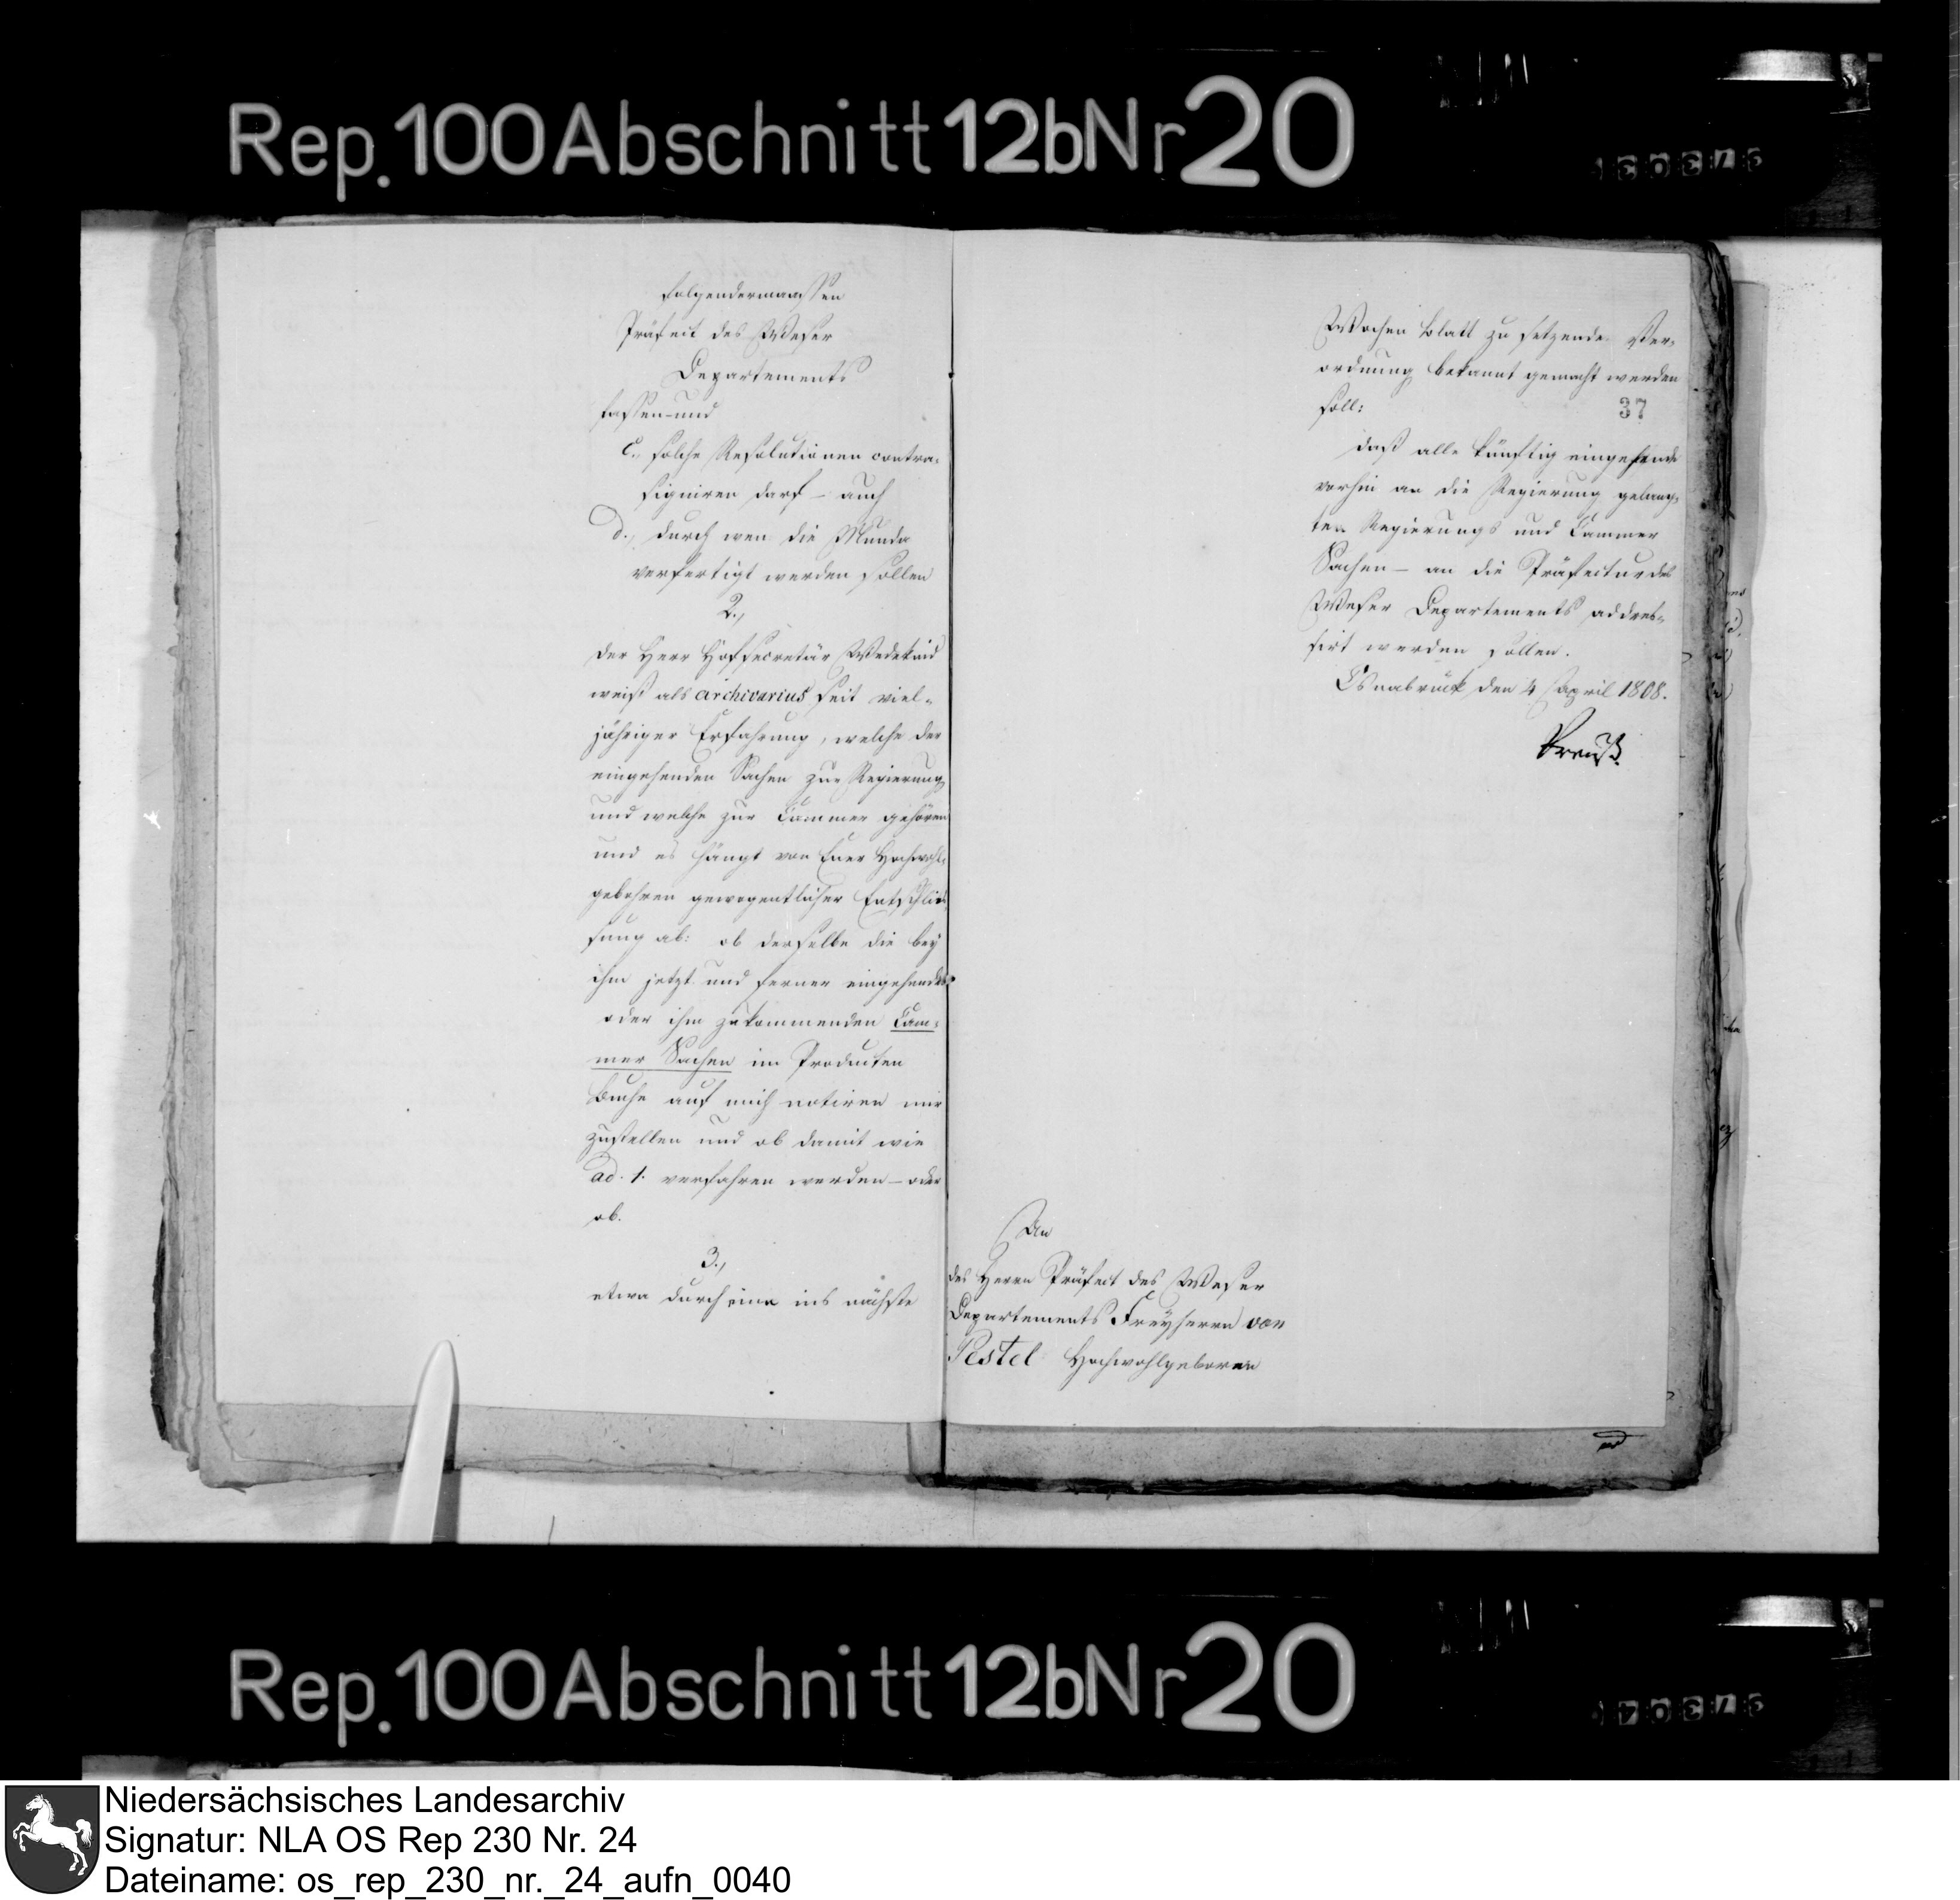 Rep. 100 Abschnitt 12b Nr 20
folgendermaassen
Präfect des Weser
Departements
fassen und
c., solche Resolutionen contra-
signiren darf – auch
d., durch wen die Munda
verfertigt werden sollen
2.,
Der Herr Hofsecretär Wedekind
weiß als Archivarius seit viel-
jähriger Erfahrung, welche der
eingehenden Sachen zur Regierung
und welche zur Cammer gehören
und es hängt von Euer Hochwohl-
gebohren gewogentlicher Entschlies-
sung ab: ob derselbe die bey
ihm jetzt und ferner eingehenden
oder ihm zukommenden Cam-
mer Sachen im Producten
Buche auf mich notiren mir
zustellen und ob damit wie
ad. 1. verfahren werden – oder
ob.
3.,
etwa durch eine ins nächste
Wochen Blatt zu setzende Ver-
ordnung bekannt gemacht werden
soll:
37
daß alle künftig eingehende
vorhin an die Regierung gelang-
ten Regierungs und Cammer
Sachen – an die Präfectur des
Weser Departements addres-
sirt werden sollen.
Osnabrück den 4 April 1808.
Preuß.
An
des Herrn Präfect des Weser
Departements Freyherrn von
Pestel Hochwohlgeboren
Rep. 100 Abschnitt 12b Nr 20
Niedersächsisches Landesarchiv
Signatur: NLA OS Rep 230 Nr. 24
Dateiname: os_rep_230_nr._24_aufn_0040